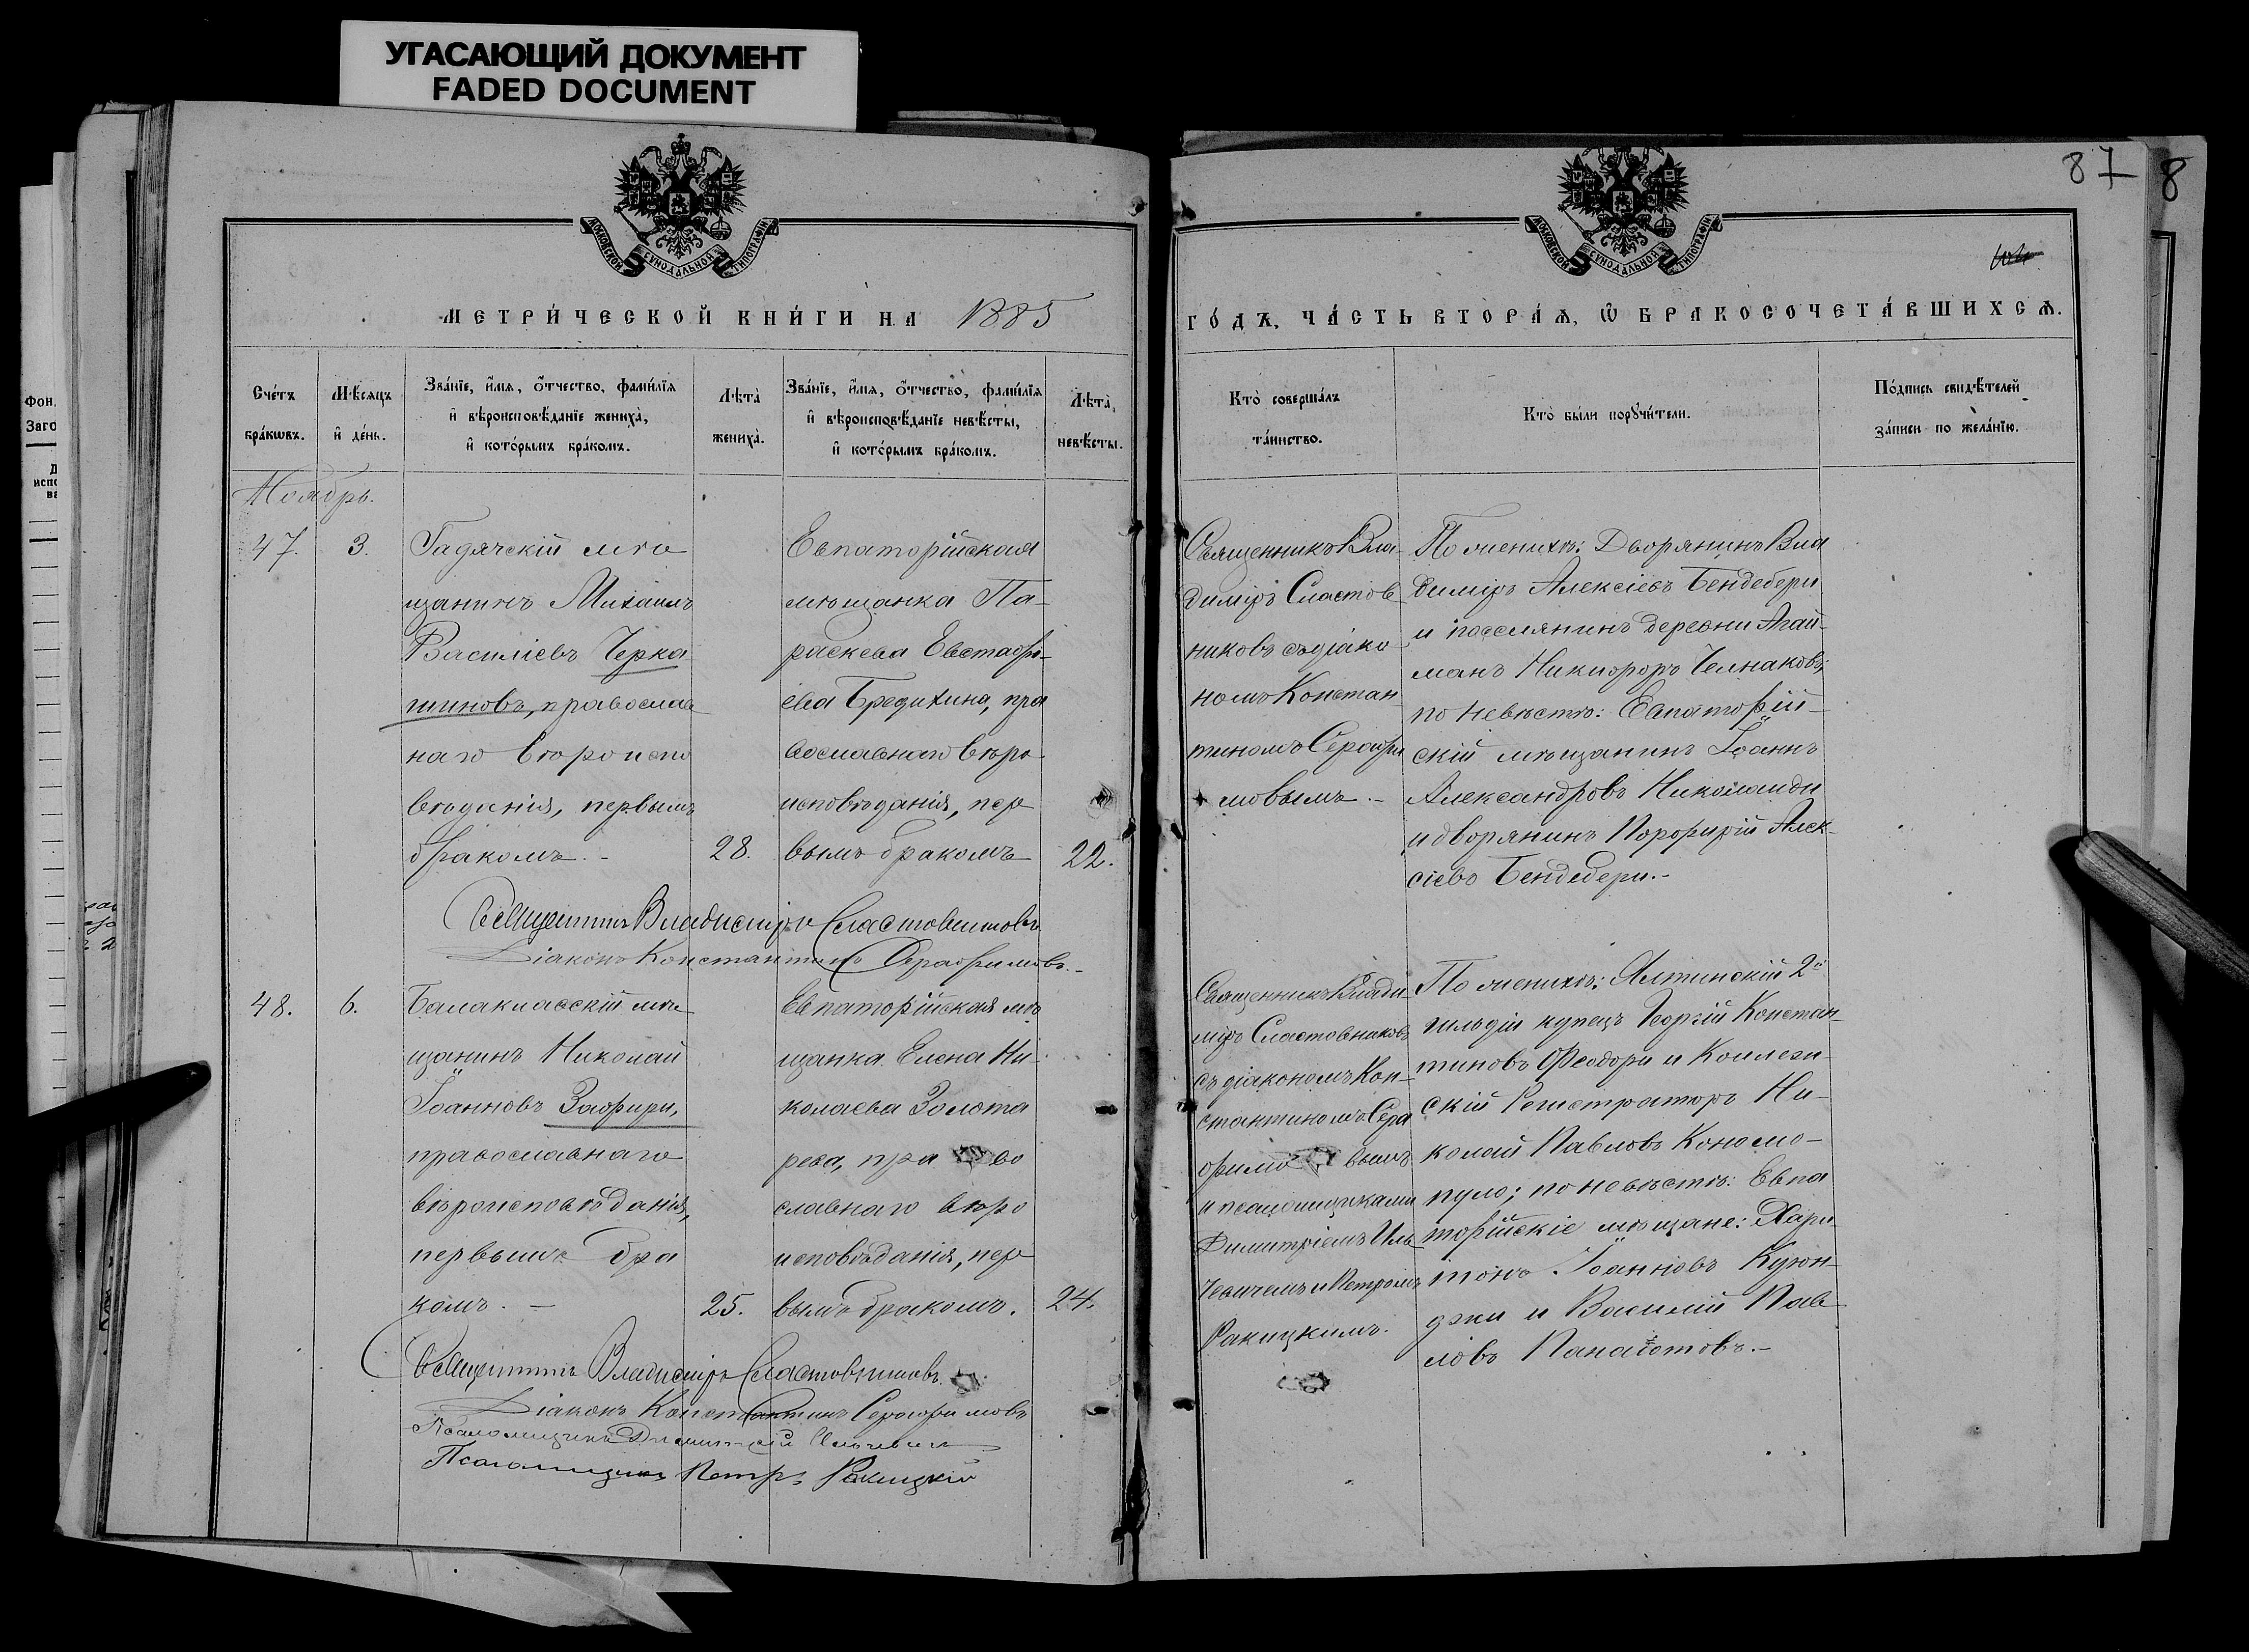 УГАСАЮЩИЙ ДОКУМЕНТ
FADED DOCUMENT
87
8
МОСКОВСКОЙ СѴНОДАЛЬНОЙ ТИПОГРАФІИ
МОСКОВСКОЙ СѴНОДАЛЬНОЙ ТИПОГРАФІИ
МЕТРИ́ЧЕСКОЙ КНИ́ГИ НА 1885
ГО́ДЪ, ЧА́СТЬ ВТОРА́Ѧ, Ѽ БРАКОСОЧЕТА́ВШИХСѦ.
Сче́тъ
бра́кѡвъ.
Мѣ́сяцъ
и҆ де́нь.
Зва́нїе, и҆́мѧ, ѻ҆́тчество, фами́лїѧ
и҆ вѣроисповѣ́данїе жениха̀,
и҆ кото́рымъ бра́комъ.
Лѣта̀
жениха̀.
Зва́нїе, и҆́мѧ, ѻ҆́тчество, фами́лїѧ
и҆ вѣроисповѣ́данїе невѣ́сты,
и҆ кото́рымъ бра́комъ.
Лѣта̀
невѣ́сты.
Кто̀ соверша́лъ
та́инство.
Кто̀ бы́ли порꙋчи́тели.
По́дпись свидѣ́телей
за́писи по жела́нїю.
Фон
Заго
Ноябрь.
47.
3.
Гадячскій мѣ
щанинъ Михаилъ
Василіевъ Черка
шиновъ, православ
наго вѣроиспо
вѣданія, первымъ
бракомъ.-
28.
Евпаторійская
мѣщанка Па-
раскева Евстафі-
ева Бредихина, пра
вославнаго вѣро
исповѣданія, пер
вымъ бракомъ
22.
Священникъ Вла
диміръ Сластов
никовъ съ діако
номъ Констан
тиномъ Серафи
мовымъ.-
По женихѣ: Дворянинъ Вла
диміръ Алексіевъ Бендебери
и поселянинъ деревни Агай-
манъ Никифоръ Челнаковъ;
по невѣстѣ: Евпаторій-
скій мѣщанинъ Іоаннъ
Александровъ Николаиди
и дворянинъ Порфирій Алек-
сіевъ Бендебери.-
Священникъ Владиміръ Сластовниковъ
Діаконъ Константинъ Серафимовъ.-
48.
6.
Балаклавскій мѣ
щанинъ Николай
Іоанновъ Зафири,
православнаго
вѣроисповѣданія,
первымъ бра
комъ.-
25.
Евпаторійская мѣ
щанка Елена Ни-
колаева Золота
рева, пра во
славнаго вѣро
исповѣданія, пер
вымъ бракомъ.
24.
Священникъ Влади
міръ Сластовниковъ
съ діакономъ Кон-
стантиномъ Сера
фимо вымъ
и псаломщиками
Димитріемъ Иль
чевичемъ и Петромъ
Ракицкимъ.
По женихѣ: Ялтинскій 2й
гильдіи купецъ Георгій Констан-
тиновъ Феодори и Коллежи-
скій Регистраторъ Ни-
колай Павловъ Кономо-
пуло; по невѣстѣ: Евпа
торійскіе мѣщане: Хари-
тонъ Іоанновъ Куюн-
джи и Василій Пав
ловъ Панаіотовъ.-
Священникъ Владиміръ Сластовниковъ.
Діаконъ Константинъ Серафимовъ
Псаломщикъ Димитрій Ильчевичъ
Псаломщикъ Петръ Ракицкій